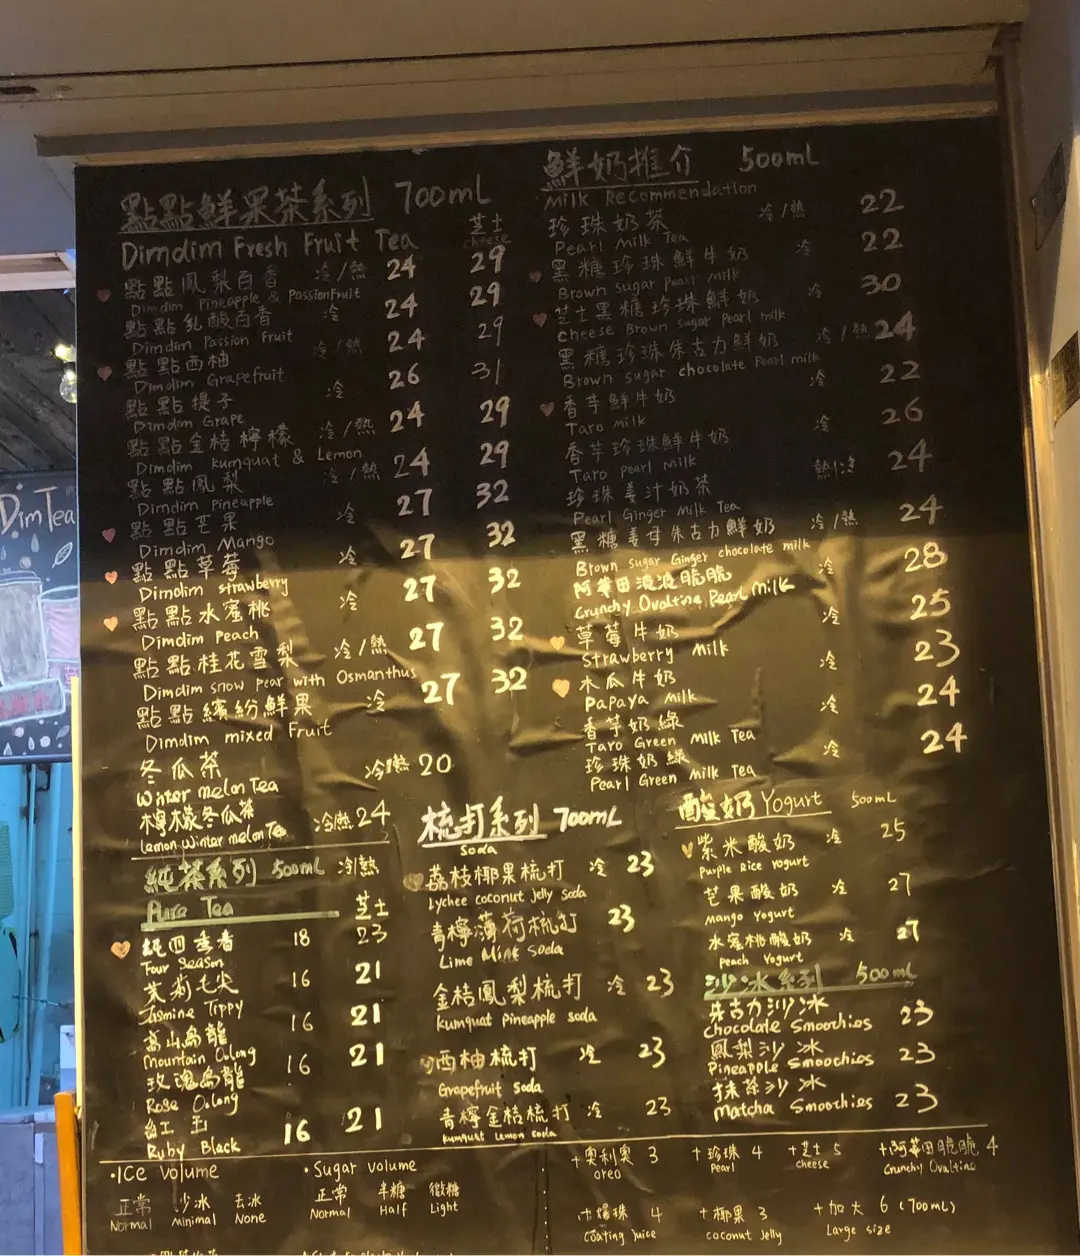 點點鮮果茶系列 700mL
Dimdim Fresh Fruit Tea 芝士 cheese
點點鳳梨百香 冷/熱 24 29
Dimdim Pineapple & Passionfruit
點點乳酸百香 冷 24 29
Dimdim Passion fruit
點點西柚 冷/熱 24 29
Dimdim Grapefruit
點點提子 冷 26 31
Dimdim Grape
點點金桔檸檬 冷/熱 24 29
Dimdim kumquat & Lemon
點點鳳梨 冷/熱 24 29
Dimdim Pineapple
點點芒果 冷 27 32
Dimdim Mango
點點草莓 冷 27 32
Dimdim strawberry
點點水蜜桃 冷 27 32
Dimdim Peach
點點桂花雪梨 冷/熱 27 32
Dimdim snow pear with Osmanthus
點點繽紛鮮果 冷 27 32
Dimdim mixed Fruit
冬瓜茶 冷/熱 20
Winter melon Tea
檸檬冬瓜茶 冷/熱 24
Lemon Winter melon Tea
純茶系列 500mL 冷/熱
Pure Tea 芝士
純四季春 18 23
Four Season
茉莉毛尖 16 21
Jasmine Tippy
高山烏龍 16 21
Mountain Oolong
玫瑰烏龍 16 21
Rose Oolong
紅玉 16 21
Ruby Black
鮮奶推介 500mL
Milk Recommendation
珍珠奶茶 冷/熱 22
Pearl Milk Tea
黑糖珍珠鮮牛奶 冷 22
Brown sugar Pearl Milk
芝士黑糖珍珠鮮奶 冷 30
Cheese Brown sugar Pearl milk
黑糖珍珠朱古力鮮奶 冷/熱 24
Brown sugar chocolate Pearl milk
香芋鮮牛奶 冷 22
Taro Milk
香芋珍珠鮮牛奶 冷 26
Taro Pearl Milk
珍珠姜汁奶茶 熱/冷 24
Pearl Ginger Milk Tea
黑糖姜母朱古力鮮奶 冷/熱 24
Brown sugar Ginger chocolate milk
阿華田波波脆脆 冷 28
Crunchy Ovaltine Pearl Milk
草莓牛奶 冷 25
Strawberry Milk
木瓜牛奶 冷 23
Papaya Milk
香芋奶綠 冷 24
Taro Green Milk Tea
珍珠奶綠 冷 24
Pearl Green Milk Tea
梳打系列 700mL
Soda
荔枝椰果梳打 冷 23
Lychee coconut jelly Soda
青檸薄荷梳打 23
Lime Mint Soda
金桔鳳梨梳打 冷 23
kumquat Pineapple soda
西柚梳打 冷 23
Grapefruit soda
青檸金桔梳打 冷 23
kumquat Lemon soda
酸奶 Yogurt 500mL
紫米酸奶 冷 25
Purple Rice Yogurt
芒果酸奶 冷 27
Mango Yogurt
水蜜桃酸奶 冷 27
Peach Yogurt
沙冰系列 500mL
朱古力沙冰 23
Chocolate Smoothies
鳳梨沙冰 23
Pineapple Smoothies
抹茶沙冰 23
Matcha Smoothies
·ICe Volume
正常 少冰 去冰
Normal Minimal None
·Sugar Volume
正常 半糖 微糖
Normal Half Light
+奧利奧 3 +珍珠 4 +芝士 5 +阿華田脆脆 4
oreo Pearl cheese Crunchy Ovaltine
+爆珠 4 +椰果 3 +加大 6 (700mL)
Coating Juice coconut Jelly Large size
DimTea